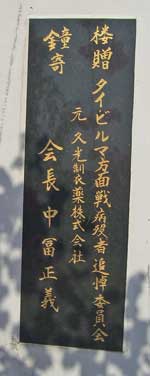 鐘楼
寄贈
タイビルマ方面戦病歿者追悼委員会
元 久光製薬株式会社
会長 中冨正義